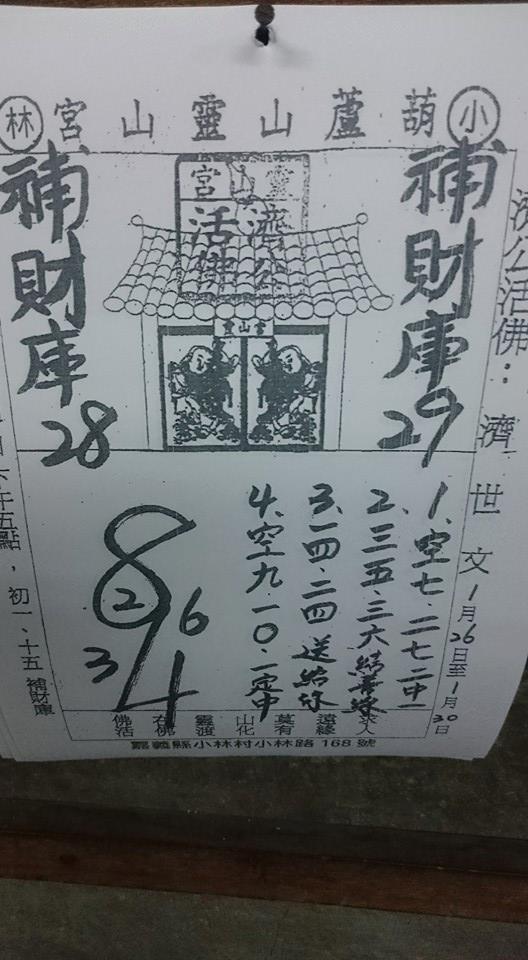 小葫蘆山靈山宮林
濟公活佛：濟世文 1月26日至1月30日
補財庫 29
靈山宮
濟公
活佛
靈山宮
補財庫 28
1、空七．二七二中一
2、三五．三六結善緣
3、一四．二四送給你
4、空九．一０．一定中
8
2
6
3
4
午五點，初一、十五 補財庫
佛在靈山莫遠求
活佛渡化有緣人
嘉義縣小林村小林路168號